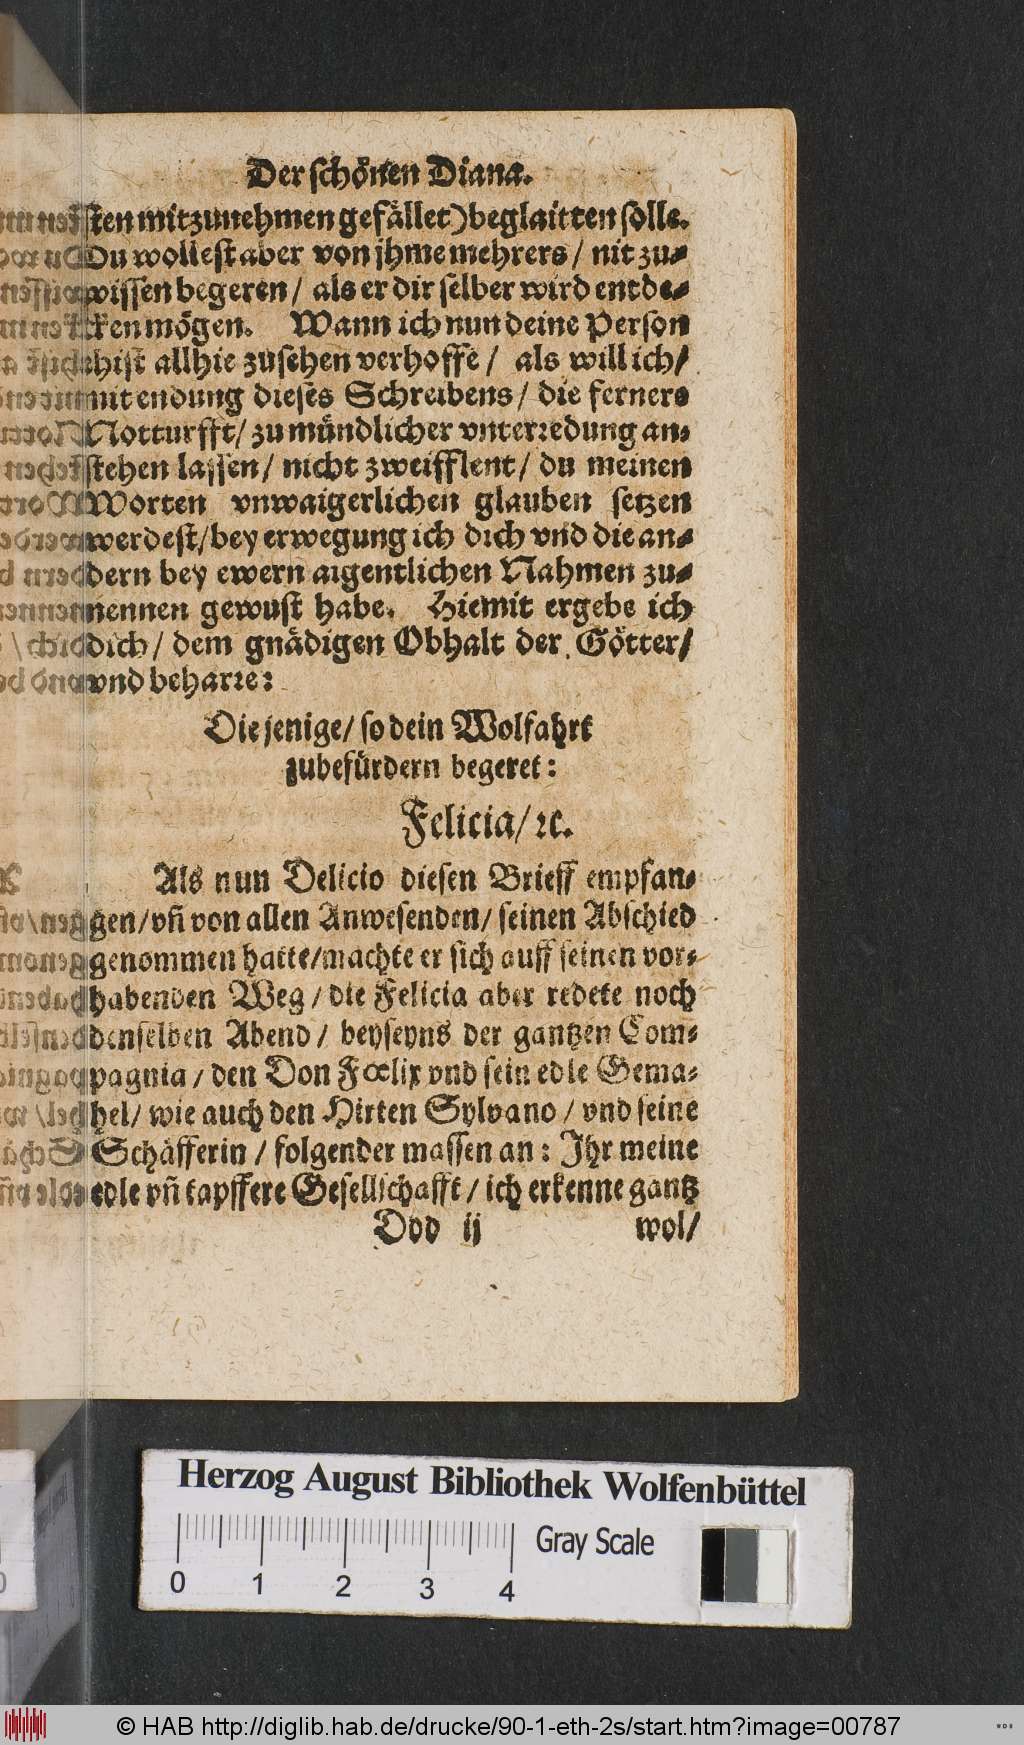 Der schönen Diana.
sten mitzunehmen gefället) beglaitten solle.
Du wollest aber von jhme mehrers / nit zu-
wissen begeren / als er dir selber wird entde-
cken mögen. Wann ich nun deine Person
hist allhie zusehen verhoffe / als will ich /
mit endung dieses Schreibens / die ferners
Notturfft / zu mündlicher vnterredung an-
stehen lassen / nicht zweifflent / du meinen
Worten vnwaigerlichen glauben setzen
werdest / bey erwegung ich dich vnd die an-
dern bey ewern aigentlichen Nahmen zu-
nennen gewust habe. Hiemit ergebe ich
dich / dem gnädigen Obhalt der Götter /
vnd beharre:
Die jenige / so dein Wolfahrt
zubefürdern begeret:
Felicia / ꝛc.
Als nun Delicio diesen Brieff empfan-
gen / vñ von allen Anwesenden / seinen Abschied
genommen hatte / machte er sich auff seinen vor-
habenden Weg / die Felicia aber redete noch
denselben Abend / beyseyns der gantzen Com-
pagnia / den Don Fœlix vnd sein edle Gema-
hel / wie auch den Hirten Sylvano / vnd seine
Schäfferin / folgender massen an: Ihr meine
edle vñ tapffere Gesellschafft / ich erkenne gantz
Ddd ij wol /
Herzog August Bibliothek Wolfenbüttel
Gray Scale
0 1 2 3 4
© HAB http://diglib.hab.de/drucke/90-1-eth-2s/start.htm?image=00787